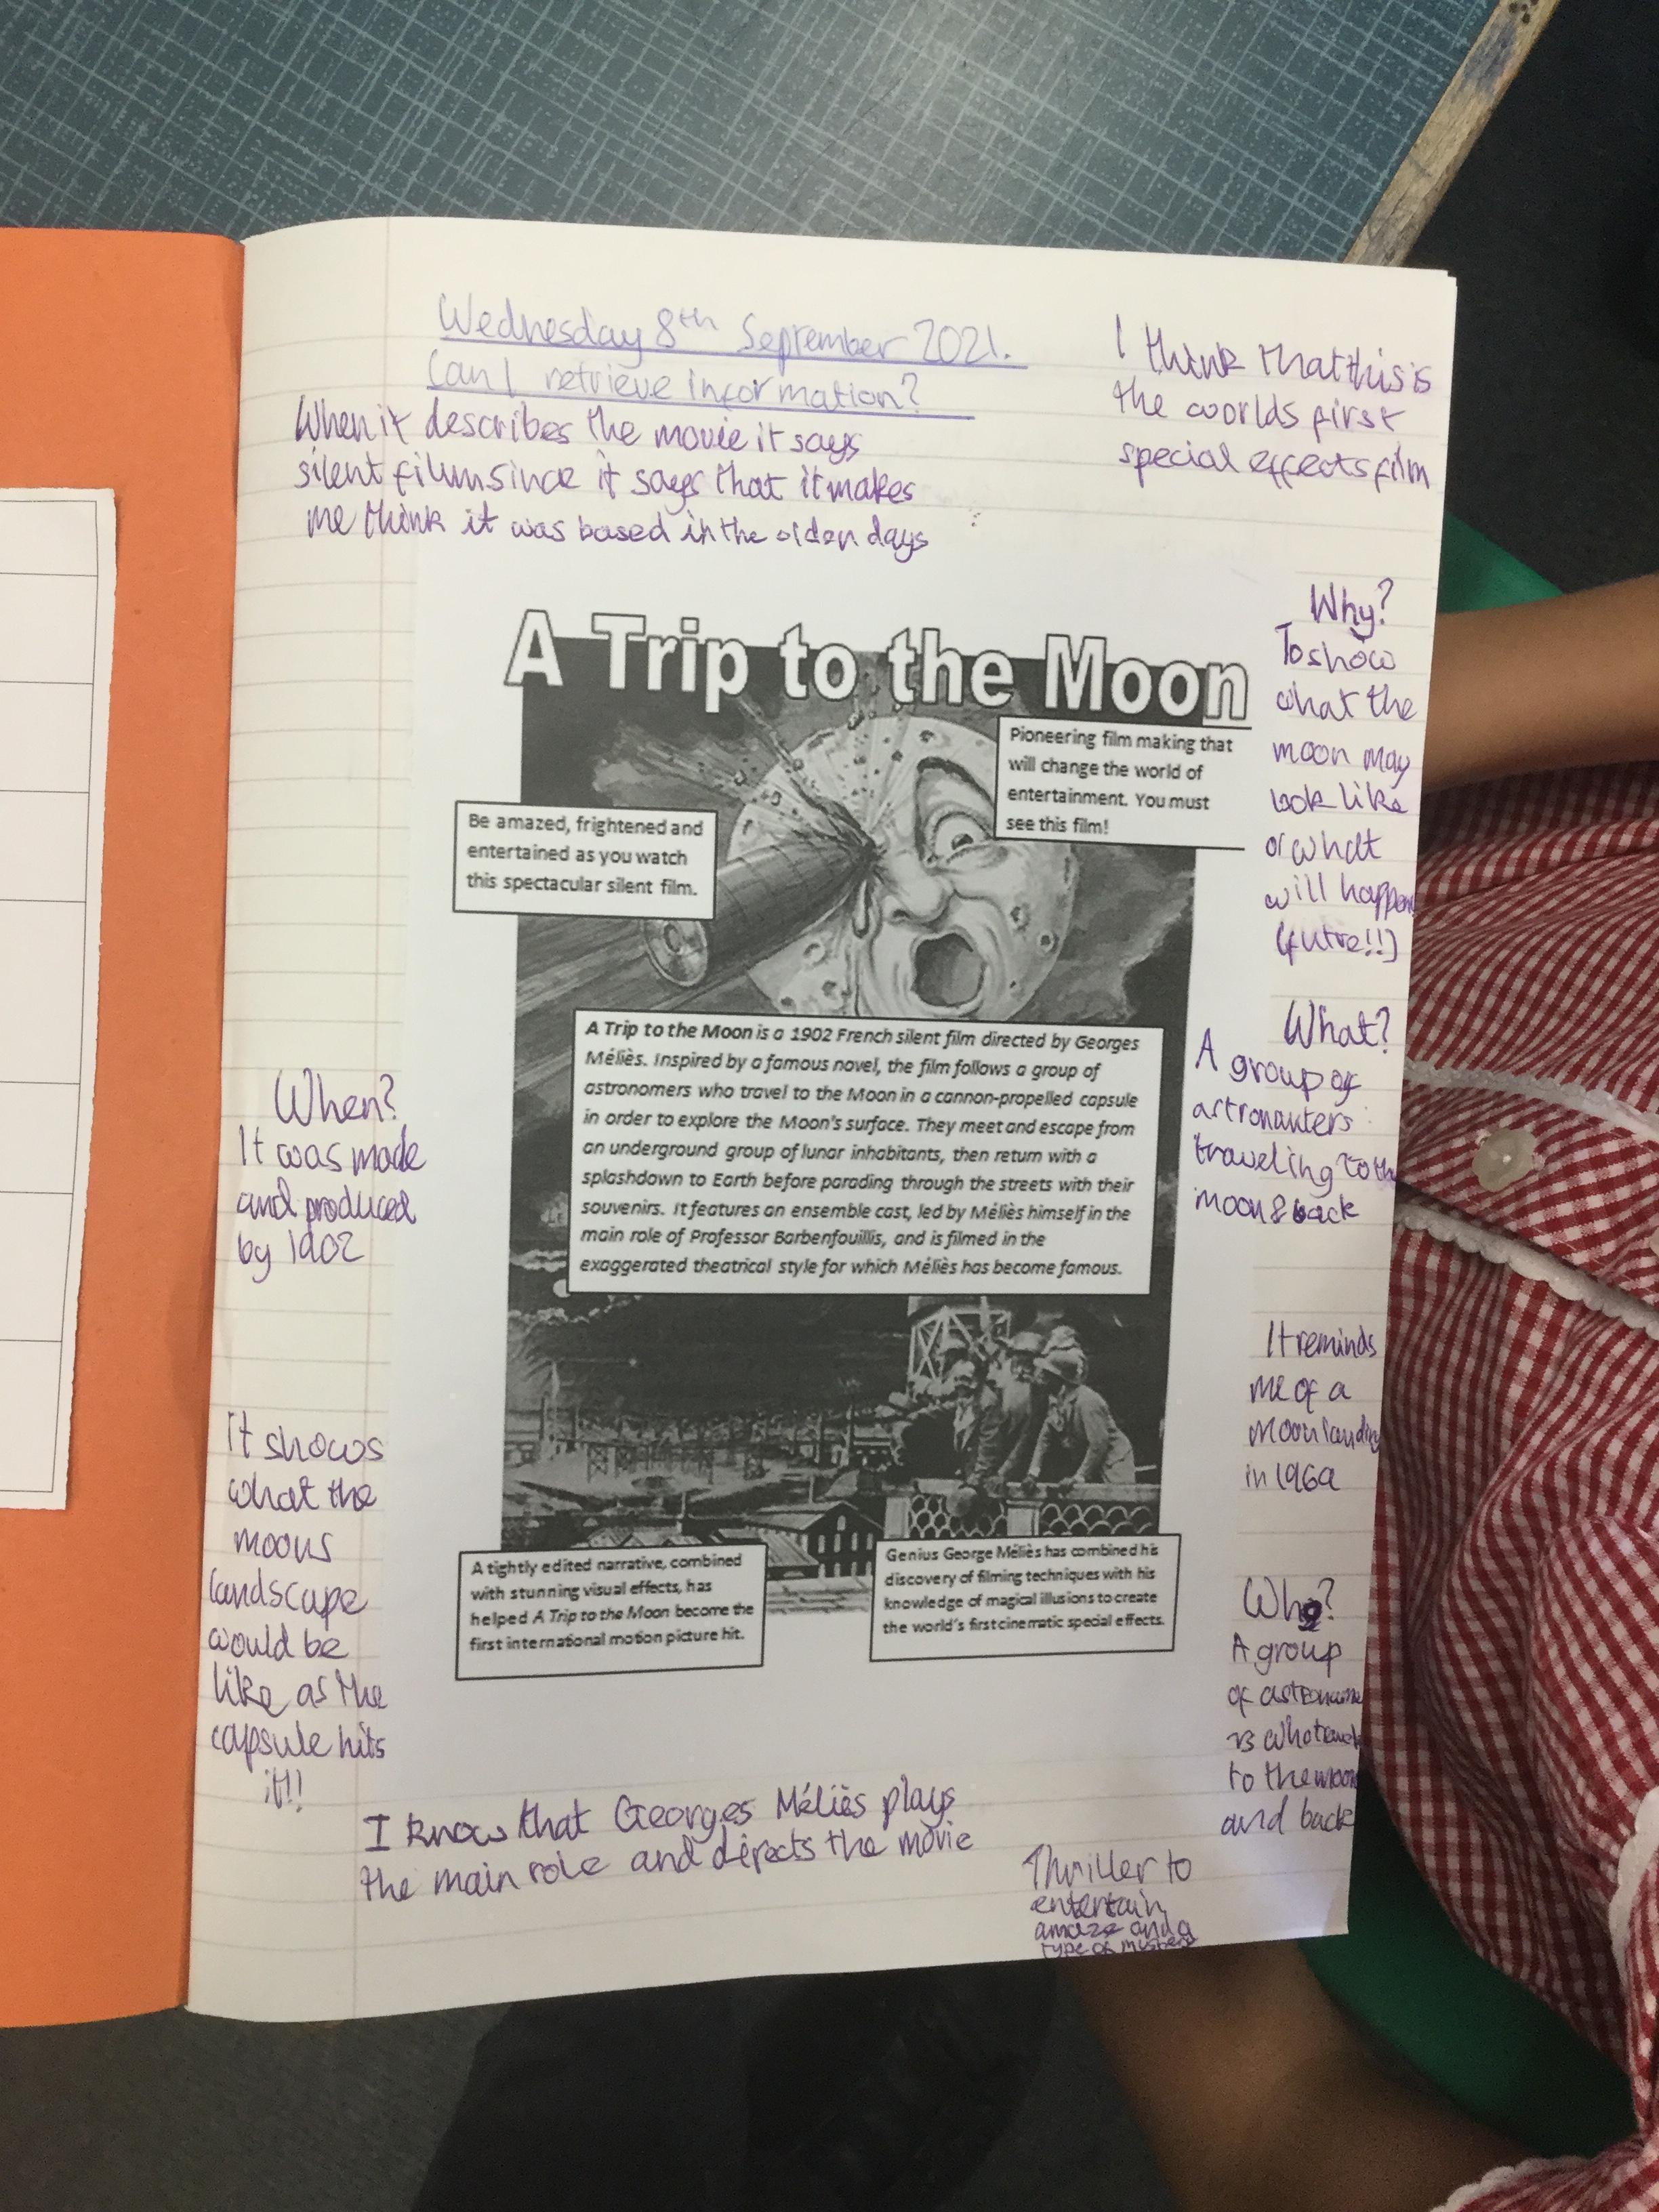 Wednesday 8th September 2021.
Can I retrieve information?
When it describes the movie it says
silent filum since it says that it makes
me think it was based in the olden days
I think that this is
the worlds first
special effects film
A Trip to the Moon
Pioneering film making that
will change the world of
entertainment. You must
see this film!
Be amazed, frightened and
entertained as you watch
this spectacular silent film.
A Trip to the Moon is a 1902 French silent film directed by Georges
Méliès. Inspired by a famous novel, the film follows a group of
astronomers who travel to the Moon in a cannon-propelled capsule
in order to explore the Moon's surface. They meet and escape from
an underground group of lunar inhabitants, then return with a
splashdown to Earth before parading through the streets with their
souvenirs. It features an ensemble cast, led by Méliès himself in the
main role of Professor Barbenfouillis, and is filmed in the
exaggerated theatrical style for which Méliès has become famous.
A tightly edited narrative, combined
with stunning visual effects, has
helped A Trip to the Moon become the
first international motion picture hit.
Genius George Méliès has combined his
discovery of filming techniques with his
knowledge of magical illusions to create
the world's first cinematic special effects.
Why?
To show
what the
moon may
look like
or what
will happen
(futre!!)
What?
A group of
astronauters
traveling to the
moon & back
It reminds
me of a
moon landing
in 1969
Who?
A group
of
to the moon
and back
When?
It was made
and produced
by 1902
it shows
what the
moons
landscape
would be
like as the
capsule hits
it!!
I know that Georges Méliès plays
the main role and directs the movie
Thriller to
entertain,
amaze and a
type of